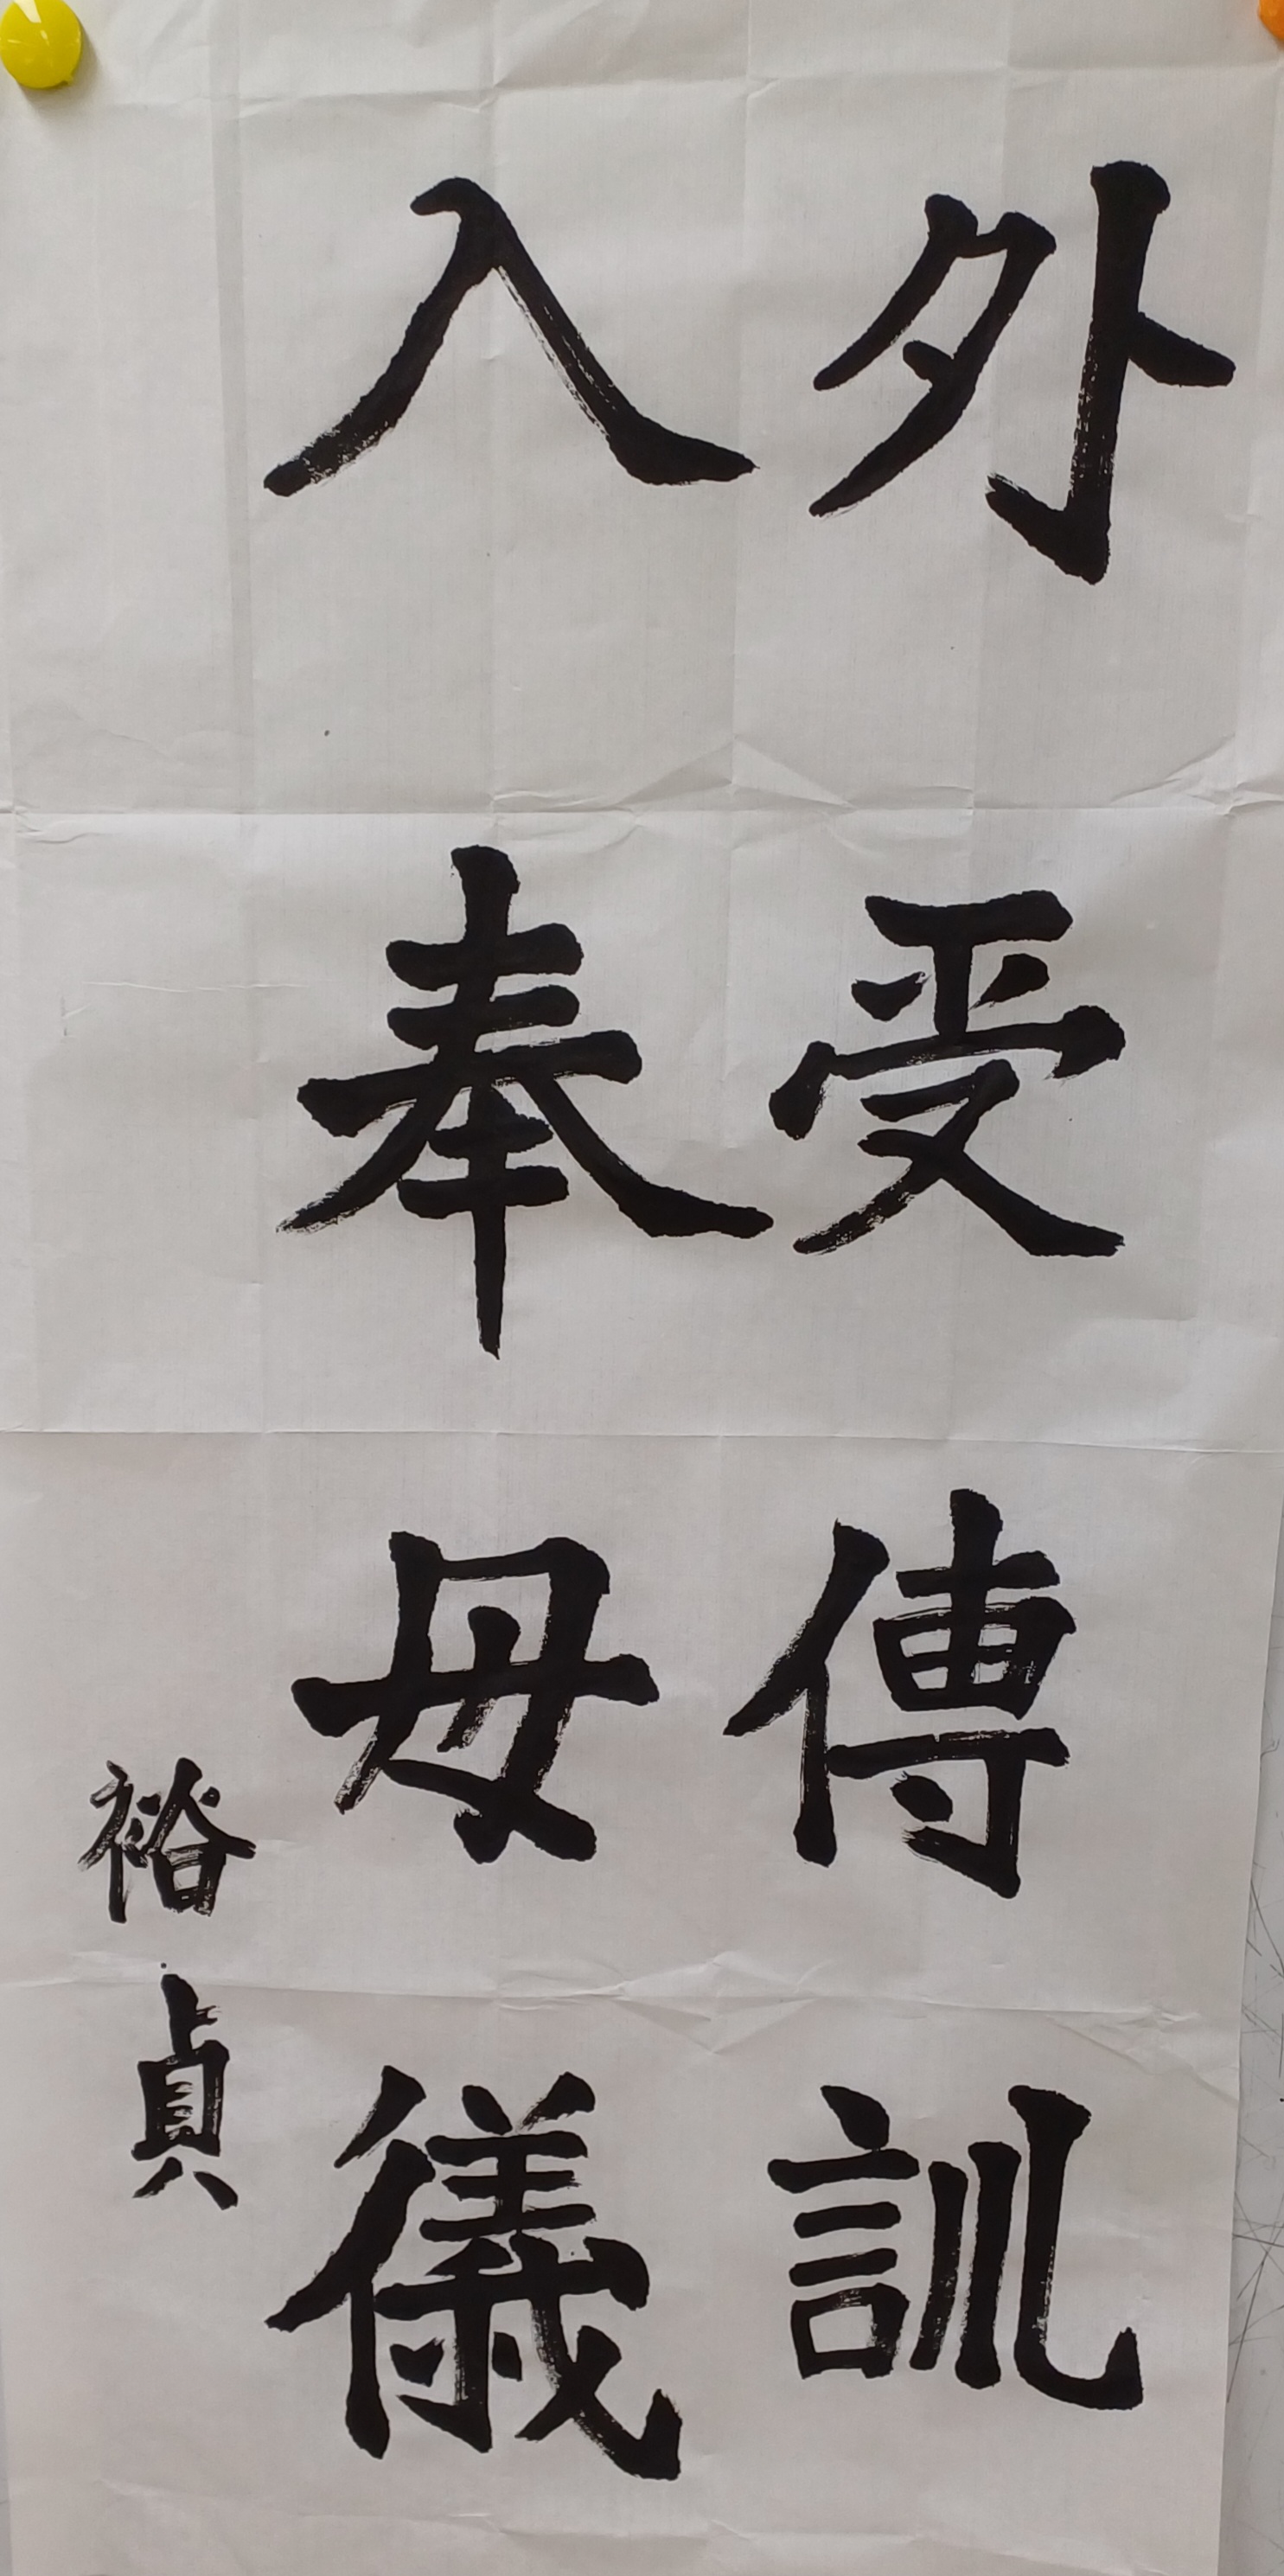 外受傅訓
入奉母儀
裕貞